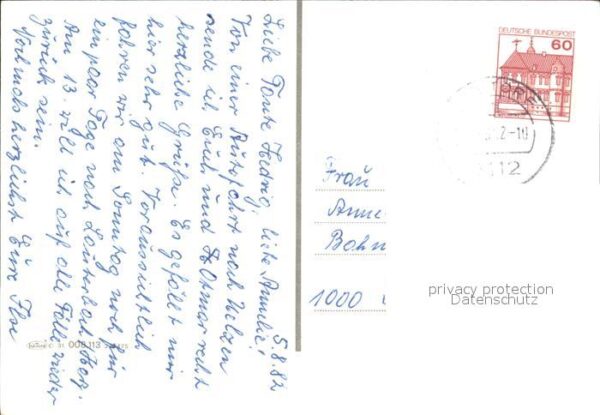 5.8.82
Liebe Tante Hedwig, liebe Annelie!
Von einer Autofahrt nach Uelzen
sende ich Euch und Hotmar recht
herzliche Grüße. Es gefällt mir
hier sehr gut. Voraussichtlich
fahren wir am Sonntag noch für
ein paar Tage nach Lauterbach
Am 13. will ich auf alle Fälle wieder
zurück sein.
Nochmals herzlichst Eure
DEUTSCHE BUNDESPOST
60
Frau
Anne
Bahn
1000
privacy protection
Datenschutz
008 113